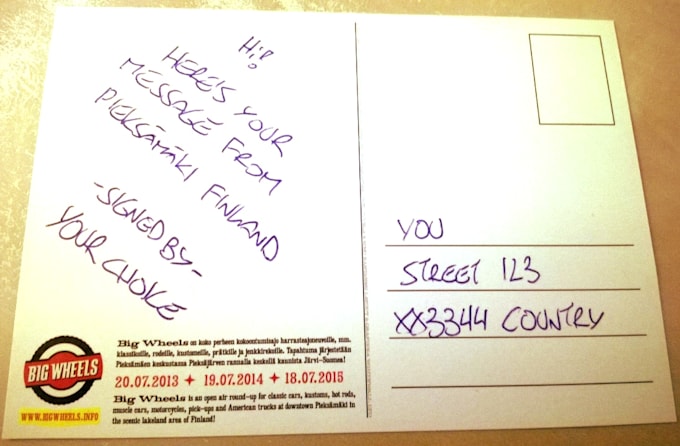 Hi!
HERE'S YOUR
MESSAGE FROM
PIEKSÄMÄKI FINLAND
-SIGNED BY-
YOUR CHOICE
YOU
STREET 123
XX3344 COUNTRY
BIG WHEELS
WWW.BIGWHEELS.INFO
Big Wheels on koko perheen kokoontumisajo harrasteajoneuvoille, mm.
klassikoille, rodeille, kustomeille, prätkille ja jenkkirekoille. Tapahtuma järjestetään
Pieksämäen keskustassa Pieksäjärven rannalla keskellä kauninta Järvi-Suomea!
20.07.2013 + 19.07.2014 + 18.07.2015
Big Wheels is an open air round-up for classic cars, kustoms, hot rods,
muscle cars, motorcycles, pick-ups and American trucks at downtown Pieksämäki in
the scenic lakeland area of Finland!